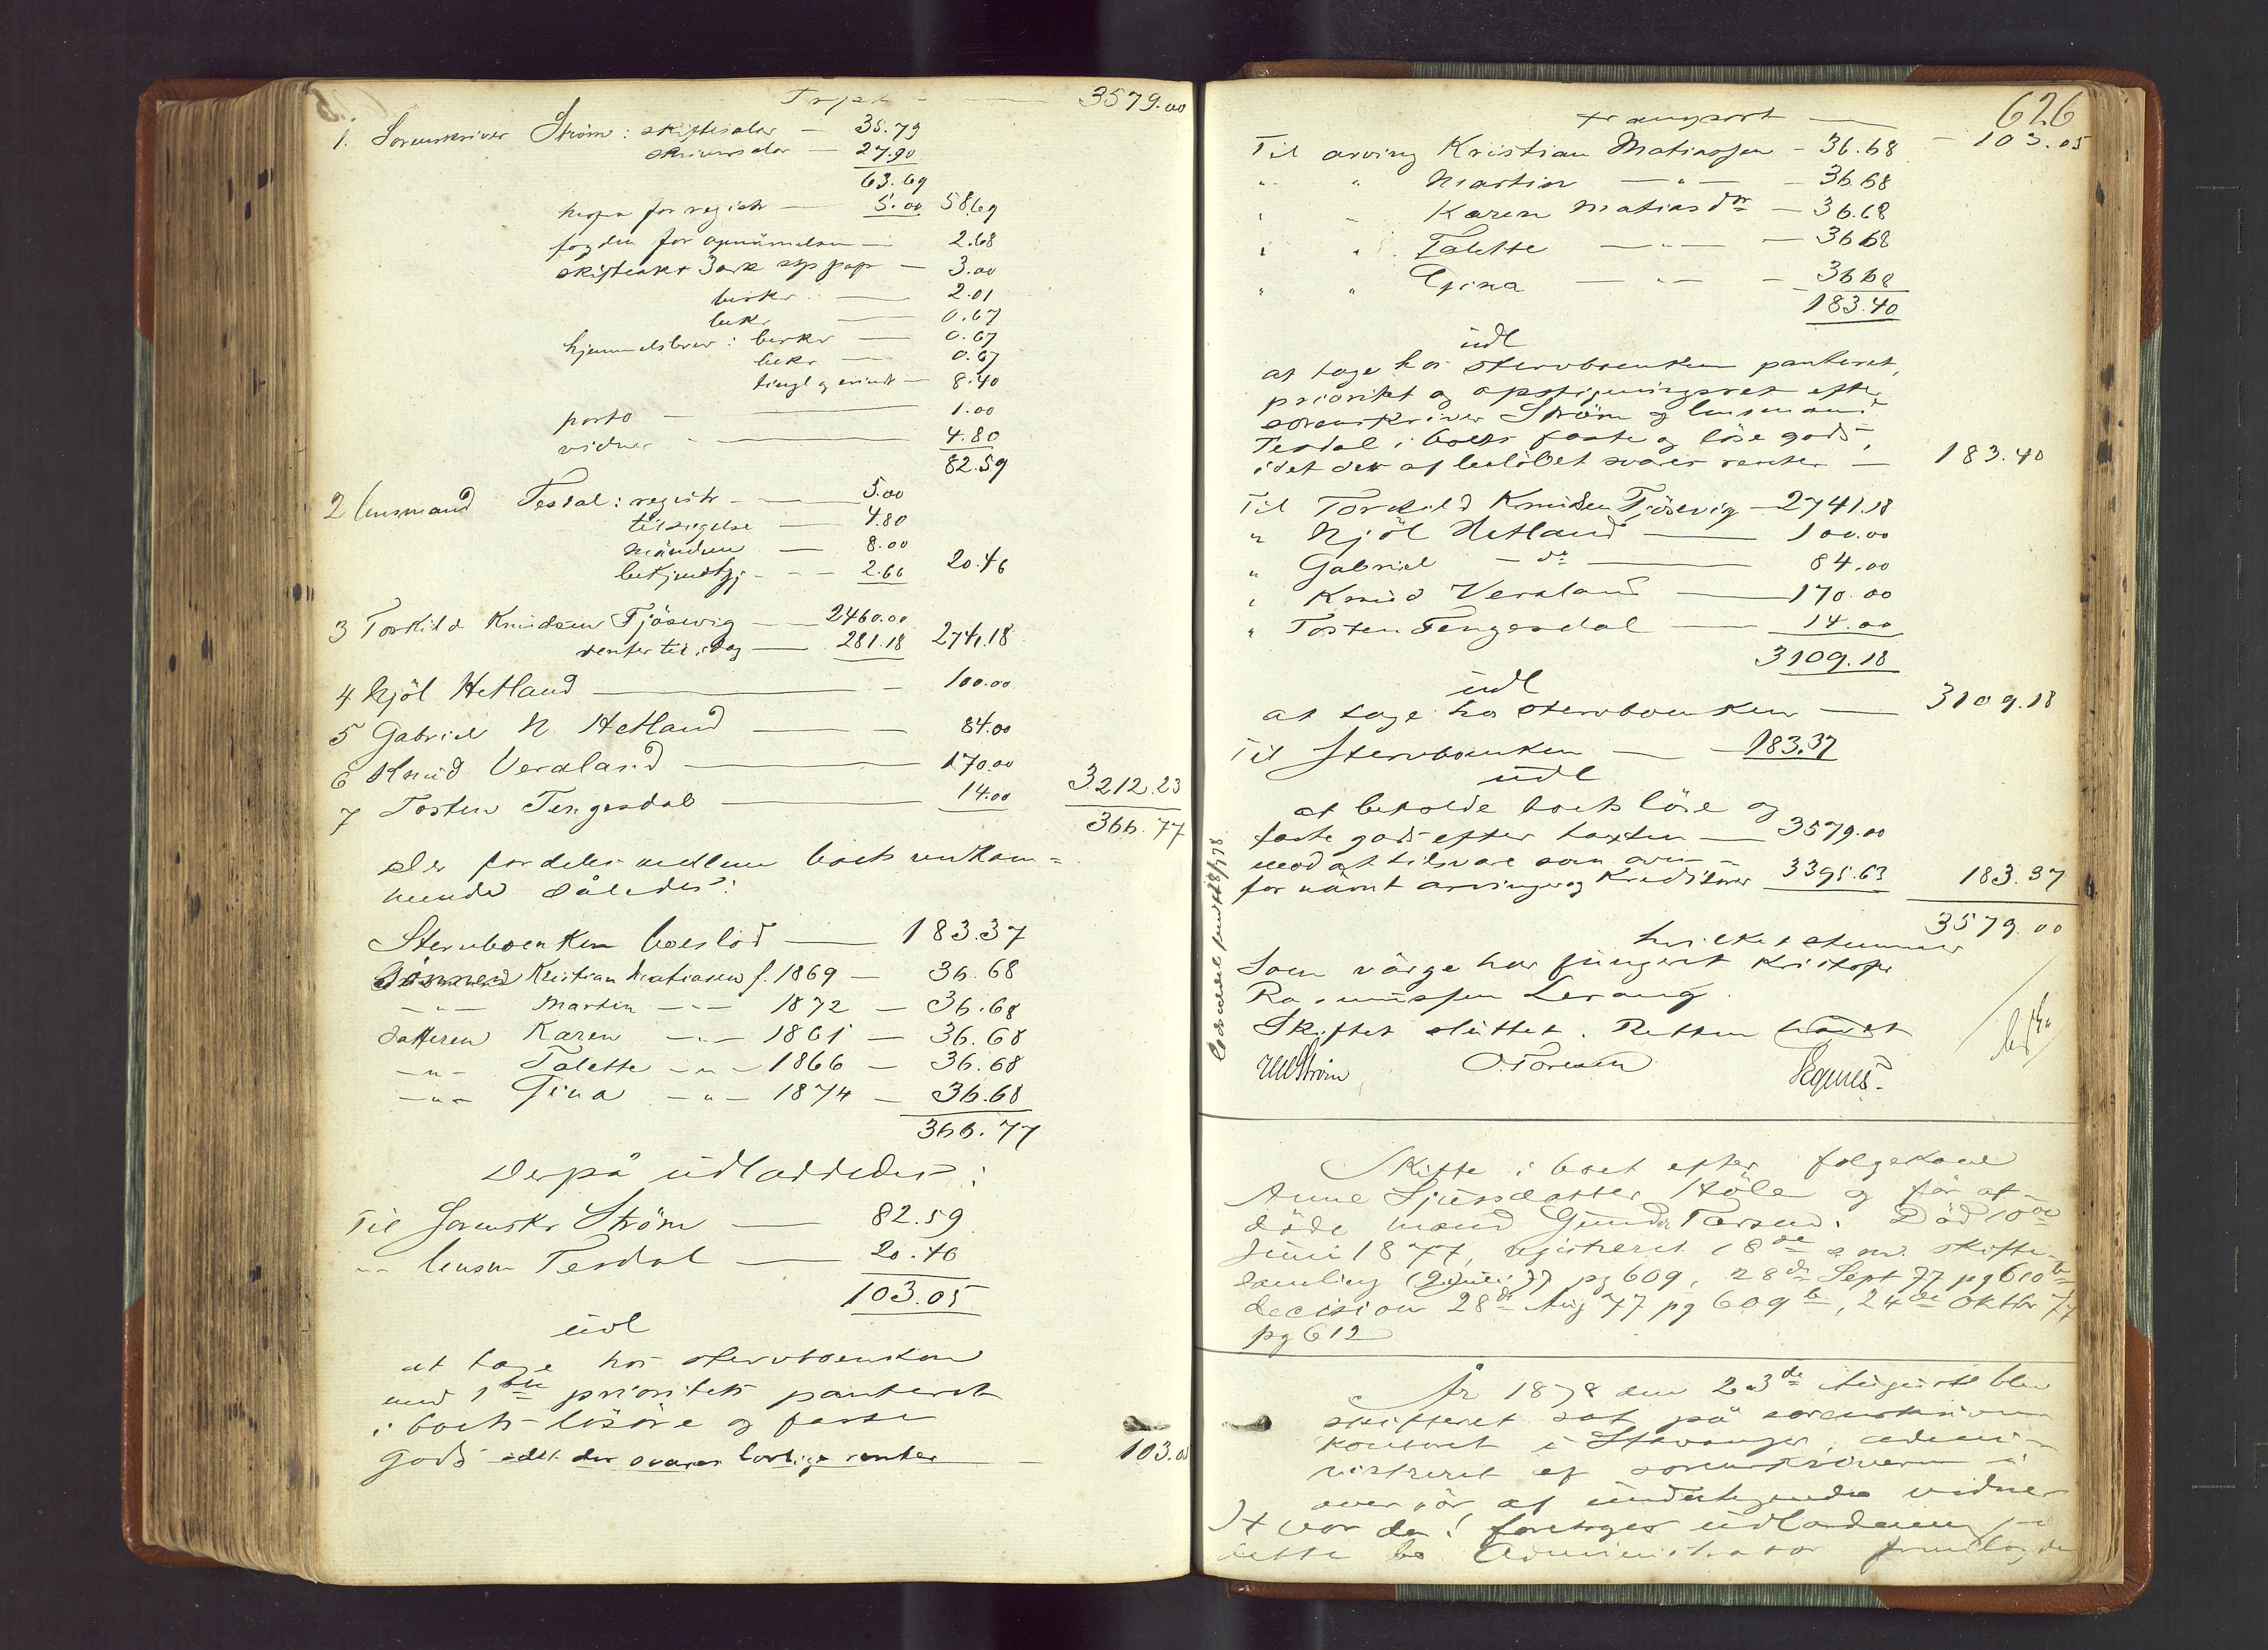 Trpt - — 3579.00
1. Sorenskriver Ström: skiftesalær — 35.79
skriversalær — 27.90
63.69
herpaa for registr — 5.00 58.69
fogden for opnævnelsen — 2.68
skifteakt 3 ark stp pap — 3.00
beskr. — 2.01
bekr — 0.67
hjemmelsbrev: beskr — 0.67
bekr — 0.67
tingl og erindr — 8.40
porto — 1.00
vidner — 4.80
82.59
2 lensmand Tesdal: registr - — 5.00
tilsigelse — 4.80
mändene — 8.00
bekjendtgj - — 2.66 20.46
3 Torkild Knudsen Tjösvig — 2460.00
renter til idag — 281.18 2741.18
4 Njöl Hetland — 100.00
5 Gabriel N Hetland — 84.00
6 Knud Veraland — 170.00
7 Tosten Tengesdal — 14.00 3212.23
366.77
der fordeles mellem boets vedkom=
mende således:
Stervboenken boeslod — 183.37
Sönnen Kristian Matiassen f. 1869 — 36.68
-„- Martin -„- 1872 — 36.68
datteren Karen -„- 1861 — 36.68
-„- Talette -„- 1866 — 36.68
-„- Gina -„- 1874 — 36.68
366.77
Derpå udlagdes:
Til Sorenskr Ström — 82.59
-„- lensm Tesdal — 20.46
103.05
udl
at tage hos stervboenken
med 1ste prioritets panteret
i boets lösöre og faste
gods idet der svares lovlige renter — 103.05
626
transport —
Til arving Kristian Matiassen - 36.68 - 103.05
„ „ Martin —„— - 36.68
„ „ Karen Matiasdtr — 36.68
„ „ Talette —„— — 36.68
„ „ Gina —„— - 36.68
183.40
udl
at tage hos stervboenken panteret,
prioritet og opstigningsret efter
sorenskriver Ström og lensmand
Tesdal i boets faste og löse gods,
idet der af beløbet svares renter — 183.40
Til Torkild Knudsen Tjösvig — 2741.18
„ Njöl Hetland — 100.00
„ Gabriel - do — 84.00
„ Knud Veraland — 170.00
„ Tosten Tengesdal — 14.00
3109.18
udl
at tage hos stervboenken — 3109.18
Til Stervboenken — 183.37
udl
at beholde boets löse og
faste gods efter taxten — 3579.00
mod at tilsvare som oven-
for nämt arvinger og kreditorer 3395.63 183.37
3579.00
hvilket stemmer
Som värge har fungeret Kristofer
Rasmussen Levang
Skiftet sluttet. Retten hävet
Ström O. Toresen
Skifte i boet efter folgekone
Anne Sjursdatter Höle og för af-
döde mand Gunder Torsen. Död 10de
Juni 1877, registreret 18de s. m. skifte-
samling 12 Juli 77 pg 609, 28de Sept 77 pg 610b
decision 28de Aug 77 pg 609b, 24de Oktbr 77
pg 612
År 1878 den 23de August blev
skifteret sat på sorenskriver-
kontoret i Stavanger, admini-
streret af sorenskriveren i
overvär af undertegnede vidner
Det var da! foretages udlodning i
dette bo Administrator fremlagde